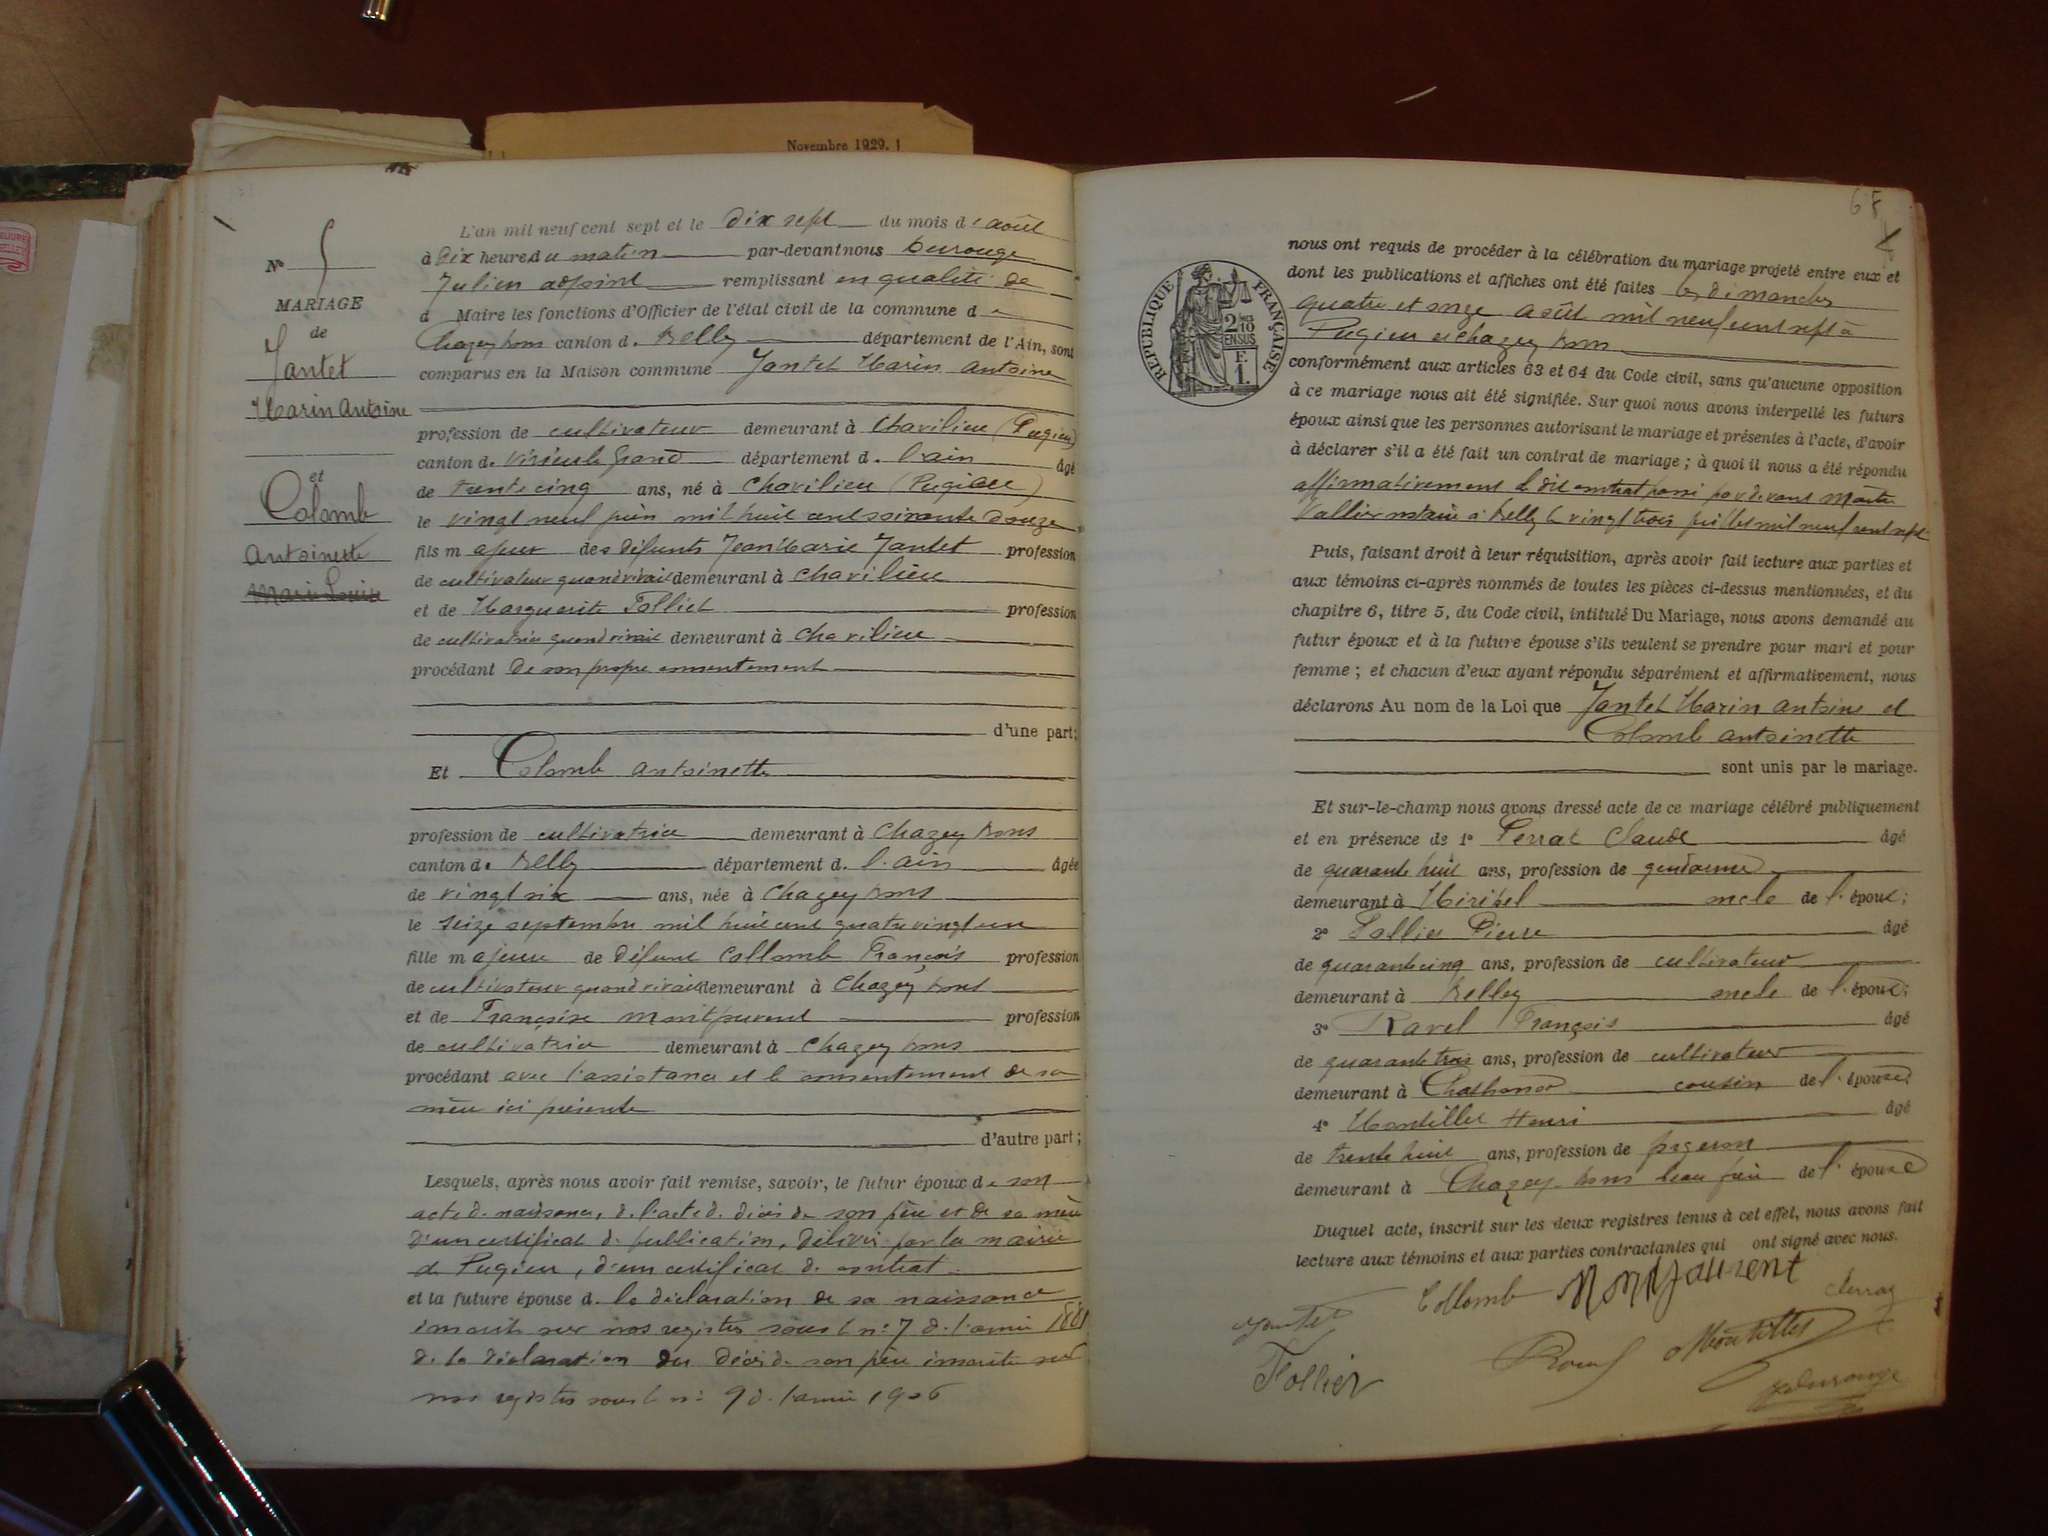 Novembre 1929.
L'an mil neuf cent sept et le dix sept du mois d'août
à dix heures du matin par-devant nous Durouge
Julien adjoint remplissant en qualité de
d Maire les fonctions d'Officier de l'état civil de la commune d
Chazey bons canton de Belley département de l'Ain, sont
comparus en la Maison commune Jantet Marin Antoine
profession de cultivateur demeurant à Chavilieu (Pugieu)
canton de Virieu le Grand département de l'ain âgé
de trente cinq ans, né à Chavilieu (Pugieu)
le vingt neuf juin mil huit cent soixante douze
fils majeur des défunts Jean Marie Jantet profession
de cultivateur quand vivait demeurant à Chavilieu
et de Marguerite Folliet profession
de cultivatrice quand vivait demeurant à Chavilieu
procédant de son propre consentement
d'une part;
Et Colomb antoinette
profession de cultivatrice demeurant à Chazey bons
canton de Belley département de l'ain âgée
de vingt six ans, née à Chazey bons
le seize septembre mil huit cent quatre vingt un
fille majeure de défunt Collomb François profession
de cultivateur quand vivait demeurant à Chazey bons
et de Françoise profession
de cultivatrice demeurant à Chazey bons
procédant avec l'assistance et le consentement de sa
mère ici présente
d'autre part;
Lesquels, après nous avoir fait remise, savoir, le futur époux de son
acte de naissance, de l'acte de décès de son père et de sa mère
d'un certificat de publication, délivré par la mairie
de Pugieu, d'un certificat de contrat
et la future épouse de la déclaration de sa naissance
inscrite sur nos registres sous le n° 7 de l'année 1881
de la déclaration du décès de son père inscrite sur
nos registres sous le n° 9 de l'année 1906
N° 5
MARIAGE
de
Jantet
Marin Antoine
et
Colomb
Antoinette
Marie Louise
68
RÉPUBLIQUE FRANÇAISE
2 10
EN SUS
F.
1.
nous ont requis de procéder à la célébration du mariage projeté entre eux et
dont les publications et affiches ont été faites les dimanches
quatre et onze août mil neuf cent sept à
Pugieu et chazey bons
conformément aux articles 63 et 64 du Code civil, sans qu'aucune opposition
à ce mariage nous ait été signifiée. Sur quoi nous avons interpellé les futurs
époux ainsi que les personnes autorisant le mariage et présentes à l'acte, d'avoir
à déclarer s'il a été fait un contrat de mariage; à quoi il nous a été répondu
affirmativement le dit contrat passé par devant Maître
Vallier notaire à Belley le vingt trois juillet mil neuf cent sept
Puis, faisant droit à leur réquisition, après avoir fait lecture aux parties et
aux témoins ci-après nommés de toutes les pièces ci-dessus mentionnées, et du
chapitre 6, titre 5, du Code civil, intitulé Du Mariage, nous avons demandé au
futur époux et à la future épouse s'ils veulent se prendre pour mari et pour
femme; et chacun d'eux ayant répondu séparément et affirmativement, nous
déclarons Au nom de la Loi que Jantet Marin antoine et
Colomb antoinette
sont unis par le mariage.
Et sur-le-champ nous avons dressé acte de ce mariage célébré publiquement
et en présence de 1° Perrat Claude âgé
de quarante huit ans, profession de gendarme
demeurant à Miribel oncle de l'époux;
2° Follier Pierre âgé
de quarante cinq ans, profession de cultivateur
demeurant à Belley oncle de l'époux;
3° Ravel François âgé
de quarante trois ans, profession de cultivateur
demeurant à cousin de l'épouse;
4° Montillet Henri âgé
de trente huit ans, profession de forgeron
demeurant à Chazey bons beau frère de l'épouse
Duquel acte, inscrit sur les deux registres tenus à cet effet, nous avons fait
lecture aux témoins et aux parties contractantes qui ont signé avec nous.
Jantet Collomb Monfaurent
Follier Montillet
JDurouge